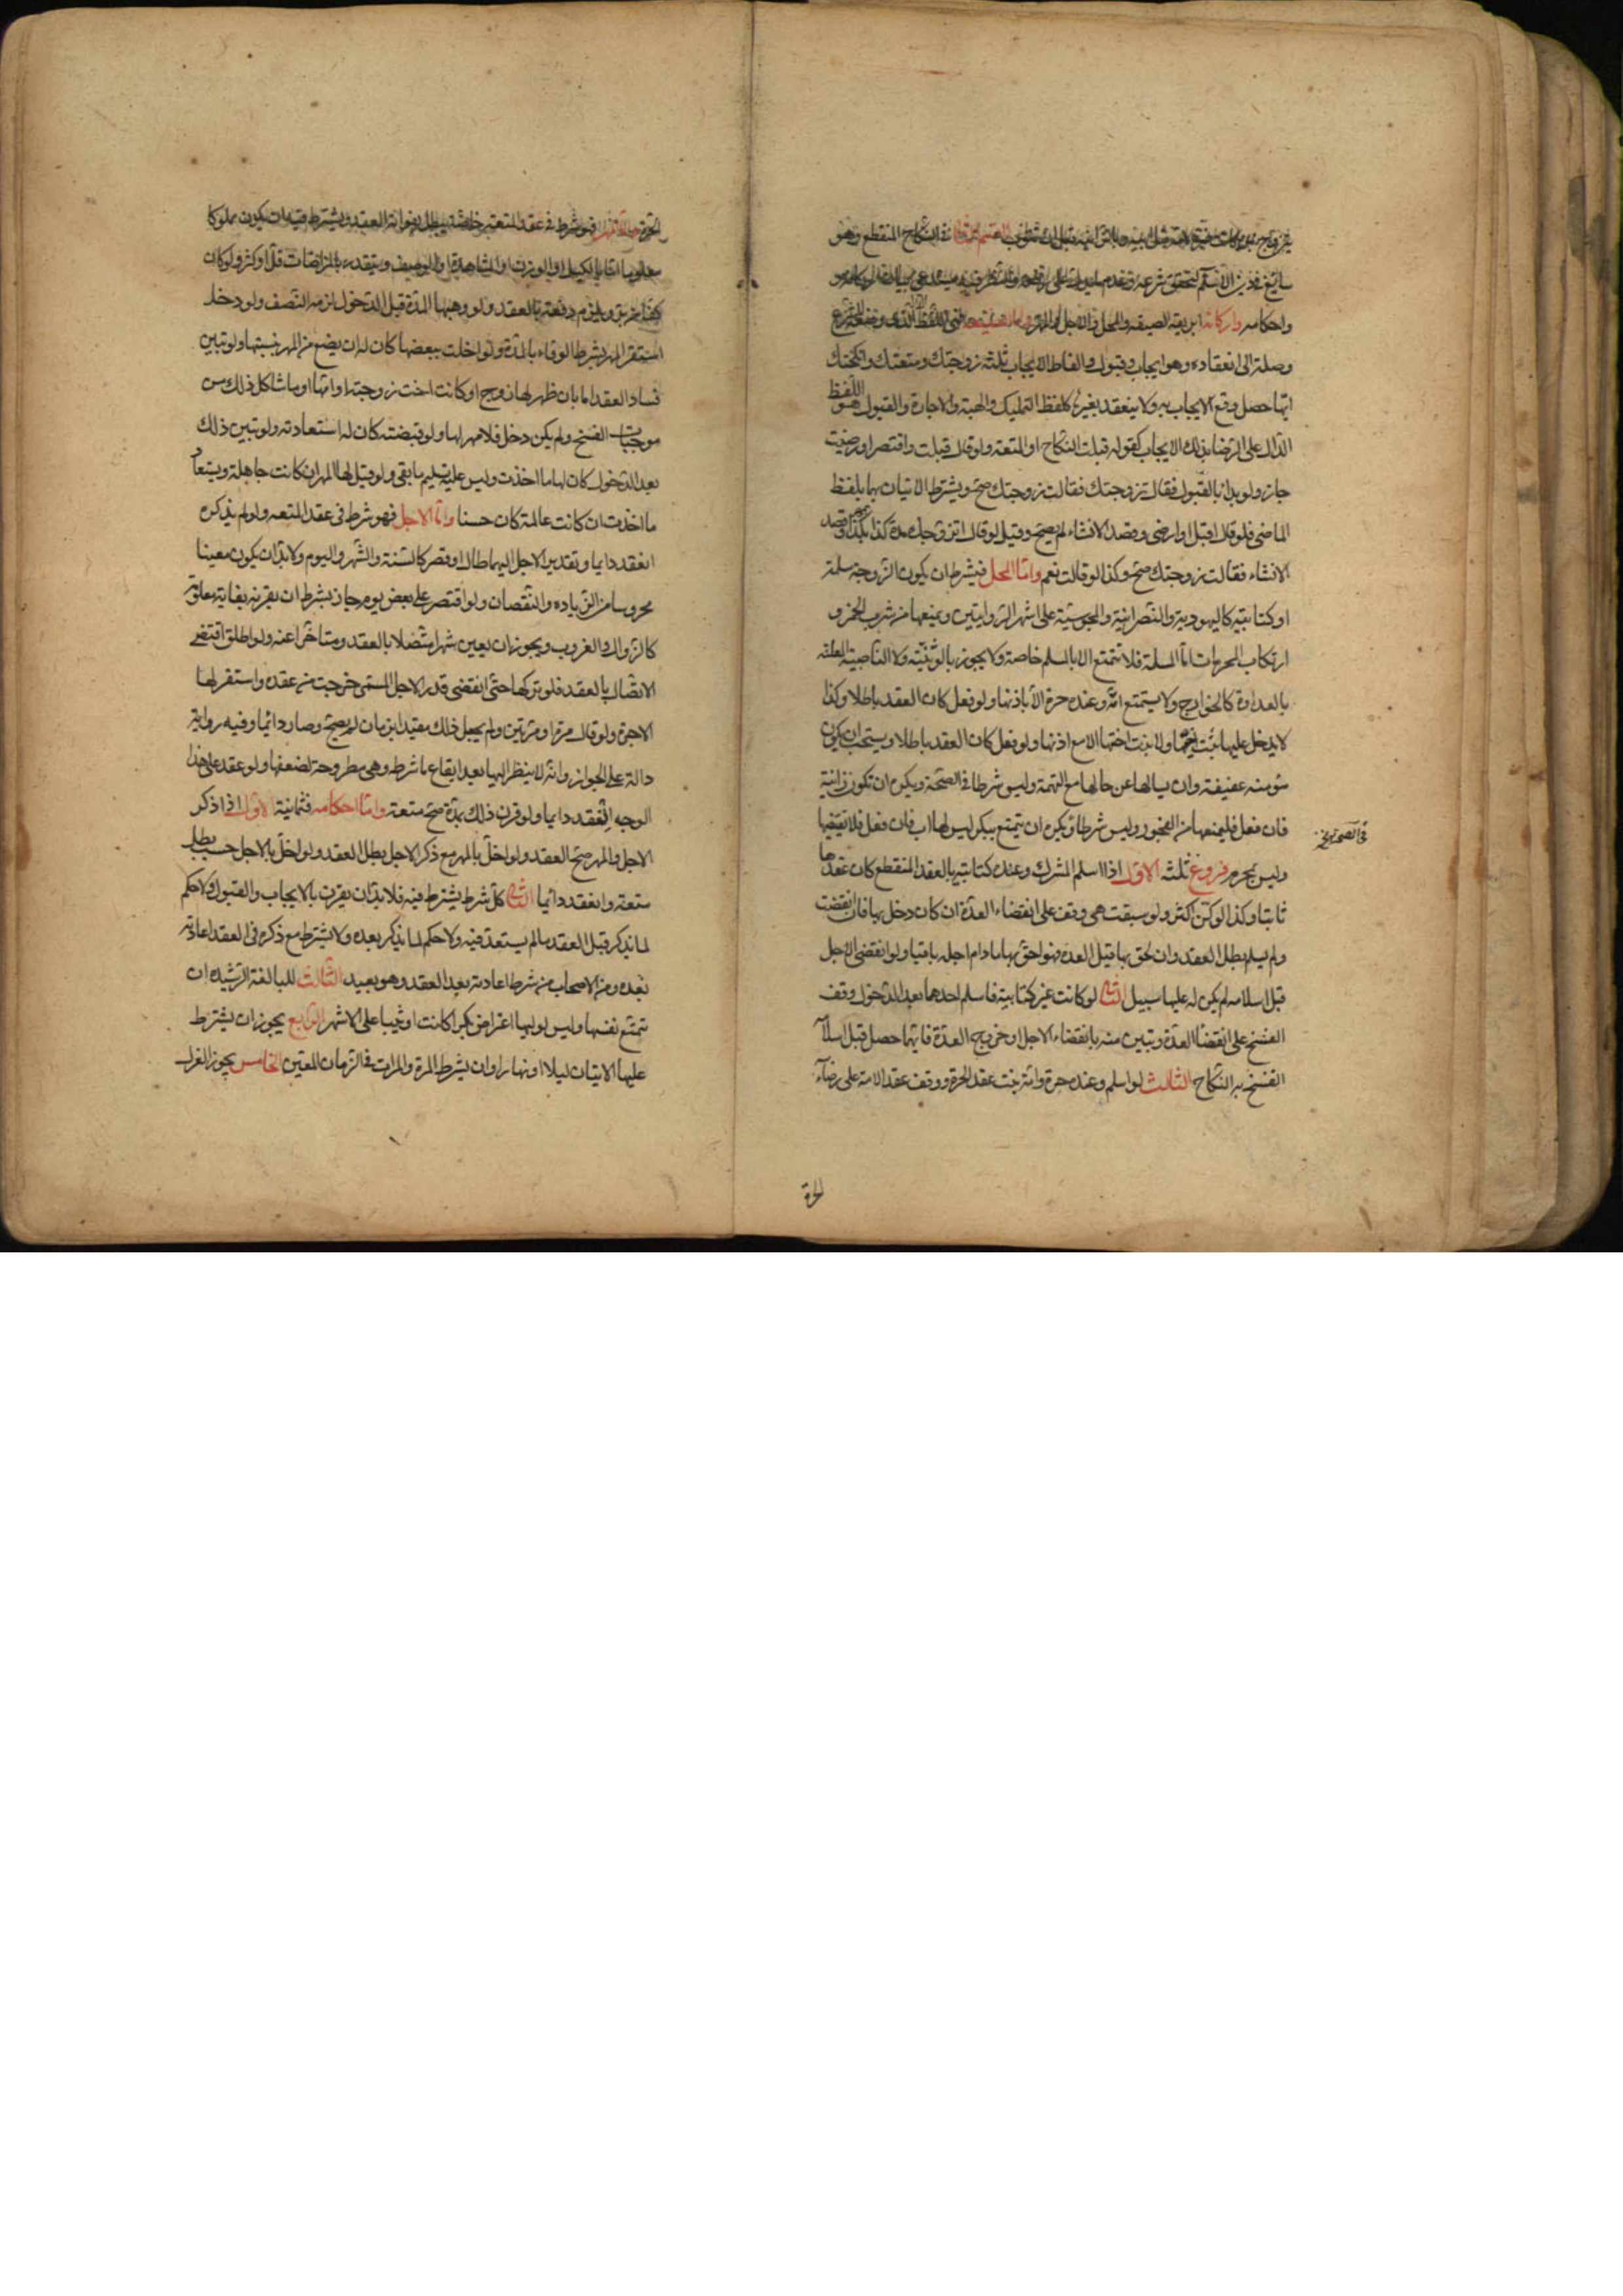 القسم الثانى فى النكاح المنقطع وهو
سايغ فى دين الاسلام لتحقق شرعيته وعدم ما يدل على رفعه والنظر فيه يستدعى بيان اركانه
واحكامه واركانه اربعة الصيغة والمحل والاجل والمهر اما الصيغة فهى اللفظ الذى وضعه الشرع
وصلة الى انعقاده وهو ايجاب وقبول والفاظ الايجاب ثلثة زوجتك ومتعتك وانكحتك
ايها حصل وقع الايجاب به ولا ينعقد بغيرها كلفظ التمليك والهبة والاجارة والقبول هو اللفظ
الدال على الرضا بذلك الايجاب كقوله قبلت النكاح او المتعة ولو قال قبلت واقتصر او رضيت
جاز ولو بدا بالقبول فقال تزوجتك فقالت زوجتك صح ويشترط الاتيان بهما بلفظ
الماضى فلو قال اقبل او ارضى وقصد الانشاء لم يصح وقيل لو قال اتزوجك مدة كذا بمهر كذا وقصد
الانشاء فقالت زوجتك صح وكذا لو قالت نعم واما المحل فيشترط ان يكون الزوجة مسلمة
او كتابية كاليهودية والنصرانية والمجوسية على اشهر الروايتين ويمنعها من شرب الخمر و
ارتكاب المحرمات اما المسلمة فلا تتمتع الا بالمسلم خاصة ولا يجوز بالوثنية ولا الناصبية المعلنة
بالعداوة كالخوارج ولا يستمتع امة وعنده حرة الا باذنها ولو فعل كان العقد باطلا وكذا
لا يدخل عليها بنت اخيها ولا بنت اختها الا مع اذنها ولو فعل كان العقد باطلا ويستحب ان يكون
مؤمنة عفيفة وان يسالها عن حالها مع التهمة وليس شرطا فى الصحة ويكره ان تكون زانية
فان فعل فليمنعها من الفجور وليس شرطا ويكره ان يتمتع ببكر ليس لها اب فان فعل فلا يفتضها
وليس بمحرم فروع ثلثة الاول اذا اسلم المشرك وعنده كتابية بالعقد المنقطع كان عقدها
ثابتا وكذا لو كن اكثر ولو سبقت هى وقف على انقضاء العدة ان كان دخل بها فان انقضت
ولم يسلم بطل العقد وان لحق بها قبل العدة فهو احق بها ما دام اجله باقيا ولو انقضى الاجل
قبل اسلامه لم يكن له عليها سبيل الثانى لو كانت غير كتابية فاسلم احدهما بعد الدخول وقف
الفسخ على انقضا العدة وتبين منه بانقضاء الاجل او خروج العدة فايهما حصل قبل اسلا
انفسخ به النكاح الثالث لو اسلم وعنده حرة وامة ثبت عقد الحرة ووقف عقد الامة على رضاء
الحرة
الحرة واما المهر فهو شرط فى عقد المتعة خاصة يبطل بفواته العقد ويشترط فيه ان يكون مملوكا
معلوما اما بالكيل او الوزن او المشاهدة او الوصف ويتقدر بالمراضات قل او كثر ولو كان
كفا من بر ويلزم دفعه بالعقد ولو وهبها المدة قبل الدخول لزمه النصف ولو دخل
استقر المهر بشرط الوفاء بالمدة ولو اخلت ببعضها كان له ان يضع من المهر بنسبتها ولو تبين
فساد العقد اما بان ظهر لها زوج او كانت اخت زوجته او امها او ما شاكل ذلك من
موجبات الفسخ ولم يكن دخل فلا مهر لها ولو قبضته كان له استعادته ولو تبين ذلك
بعد الدخول كان لها ما اخذت وليس عليه تسليم ما بقى ولو قيل لها المهر ان كانت جاهلة ويستعاد
ما اخذت ان كانت عالمة كان حسنا واما الاجل فهو شرط فى عقد المتعة ولو لم يذكره
انعقد دايما وتقدير الاجل اليهما طال او قصر كالسنة والشهر واليوم ولا بد ان يكون معينا
محروسا من الزياده والنقصان ولو اقتصر على بعض يوم جاز بشرط ان يقرنه بغاية معلومة
كالزوال والغروب ويجوز ان يعين شهرا متصلا بالعقد ومتاخرا عنه ولو اطلق اقتضى
الاتصال بالعقد فلو تركها حتى انقضى قدر الاجل المسمى خرجت من عقده واستقر لها
الاجرة ولو قال مرة او مرتين ولم يجعل ذلك مقيدا بزمان لم يصح وصار دائما وفيه رواية
دالة على الجواز وانه لا ينظر اليها بعد ايقاع ما شرط وهى مطروحة لضعفها ولو عقد على هذا
الوجه انعقد دايما ولو قرن ذلك بمدة صح متعة واما احكامه فثمانية الاول اذا ذكر
الاجل والمهر صح العقد ولو اخل بالمهر مع ذكر الاجل بطل العقد ولو اخل بالاجل حسب بطل
متعة وانعقد دائما الثانى كل شرط يشترط فيه فلا بد ان يقرن بالايجاب والقبول ولا حكم
لما يذكر قبل العقد ما لم يستعد فيه ولا حكم لما يذكر بعده ولا يشترط مع ذكره فى العقد اعادته
بعده ومن الاصحاب من شرط اعادته بعد العقد وهو بعيد الثالث للبالغة الرشيده ان
تمتع نفسها وليس لوليها اعتراض بكرا كانت او ثيبا على الاشهر الرابع يجوز ان يشترط
عليها الاتيان ليلا او نهارا وان يشترط المرة والمرات فى الزمان المعين الخامس يجوز العزل